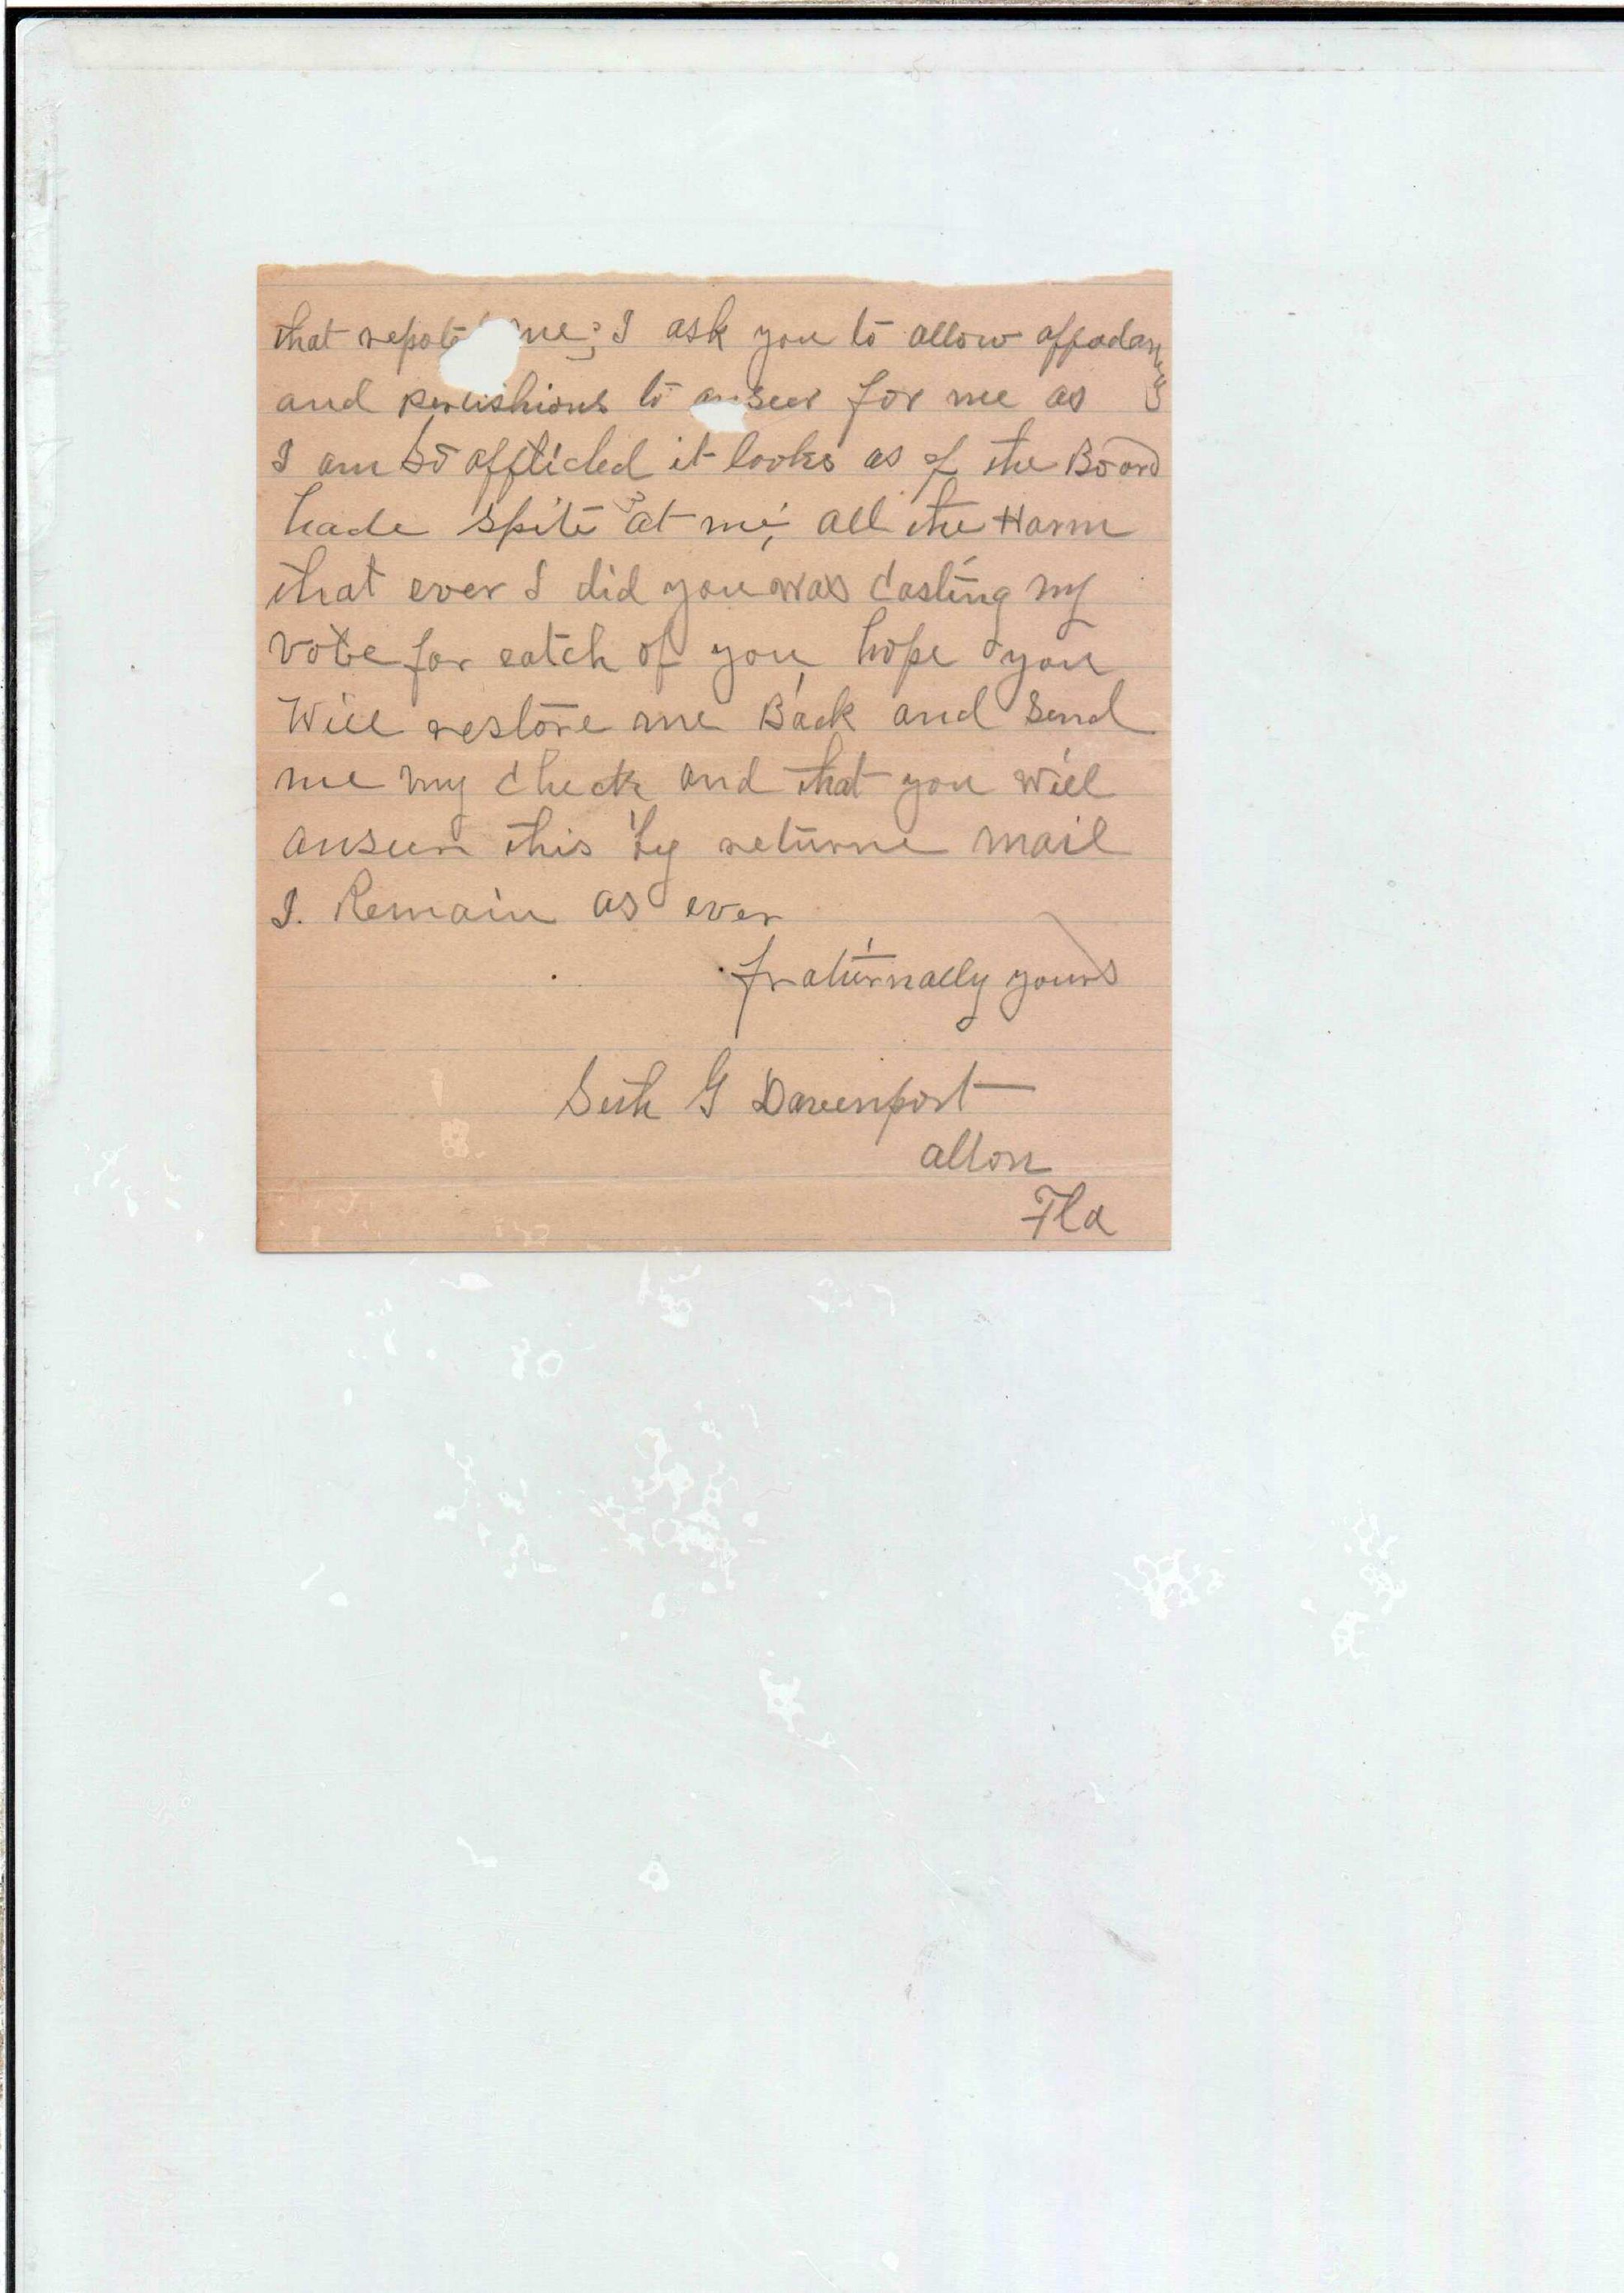 that me; I ask you to allow
and to anseer for me as
I am so afflicted it looks as if the Board
hade spite at me; all the Harm
that ever I did you was casting my
vote for eatch of you, hope you
Will restore me Back and send
me my check and that you will
anseer this by returne mail
I. Remain as ever
fraturnally yours
Seth G Davenport
alton
Fla